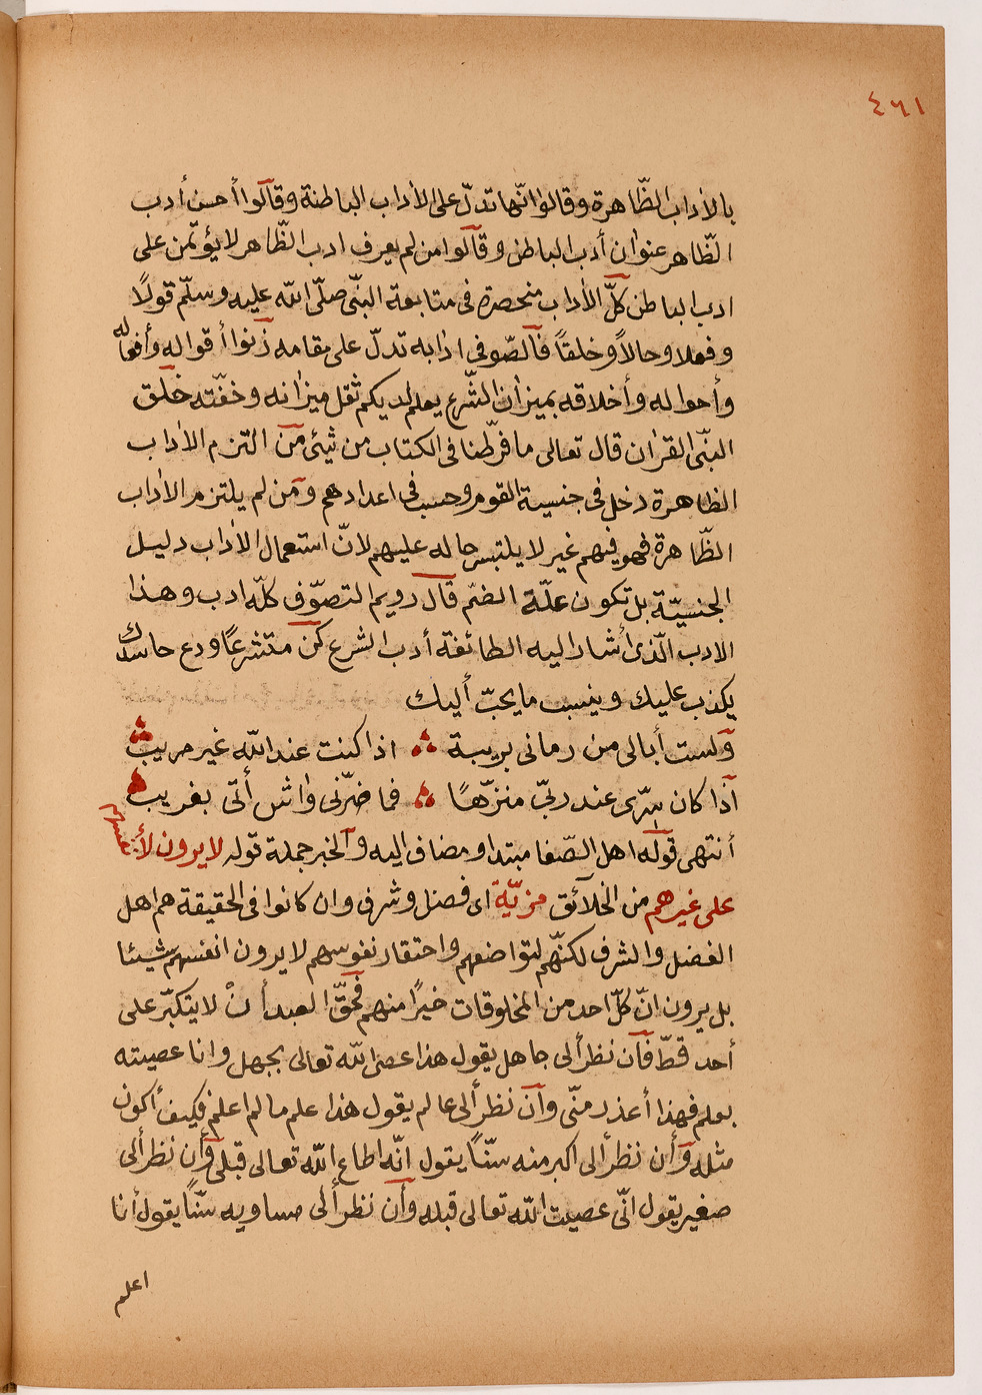 ٤٦١
بالأداب الظّاهرة وقالوا انّها تدلّ على الأداب الباطنة وقالوا أحسن أدب
الظّاهر عنوان أدب الباطن وقالوا من لم يعرف ادب الظّاهر لا يؤتمن على
ادب الباطن كلّ الأداب منحصرة فى متابعة النبّى صلّى الله عليه وسلّم قولاً
وفعلا وحالاً وخلقاً فالصّوفى ادابه تدلّ على مقامه زنوا أقواله وأفعاله
وأحواله وأخلاقه بميزان الشّرع يعلم لديكم ثقل ميزانه وخفّته خلق
النبّى القرٰان قال تعالى ما فرّطنا فى الكتاب من شيئ من التزم الأداب
الظاهرة دخل فى جنسية القوم وحسب فى اعدادهم ومن لم يلتزم الأداب
الظّاهرة فهو فيهم غير لا يلتبس حاله عليهم لانّ استعمال الأداب دليل
الجنسيّة بل تكون علّة الضمّ قال رويم التصوّف كلّه ادب وهذا
الادب الّذى أشار اليه الطائفة أدب الشرع كن متشرعًا ودع حاسدك
يكذب عليك وينسب ما يحبّ أليك
ولست أبالى من رمانى بريبة ∴ اذا كنت عند الله غير مريب
اذا كان سرّى عند ربّى منزّهًا ∴ فما ضرّنى واش أتى بغريب
أنتهى قوله اهل الصّفا مبتدا ومضاف اليه والخبر جملة قوله لا يرون لأنفسهم
على غيرهم من الخلآئق مزيّة اى فضل وشرف وان كانوا فى الحقيقة هم اهل
الفضل والشرف لكنّهم لتواضعهم واحتقار نفوسهم لا يرون انفسهم شيئا
بل يرون انّ كلّ احد من المخلوقات خيرًا منهم فحقّ العبد أنْ لا يتكبّر على
أحد قطّ فان نظر ألى جاهل يقول هذا عصى الله تعالى بجهل وانا عصيته
بعلم فهذا أعذر منّى وان نظر ألى عالم يقول هذا علم ما لم اعلم فكيف أكون
مثله وأن نظر ألى اكبر منه سنّاً يقول انّه اطاع الله تعالى قبلى وأن نظر ألى
صغير يقول انّى عصيت الله تعالى قبله وأن نظر ألى مساويه سنّاً يقول أنا
اعلم